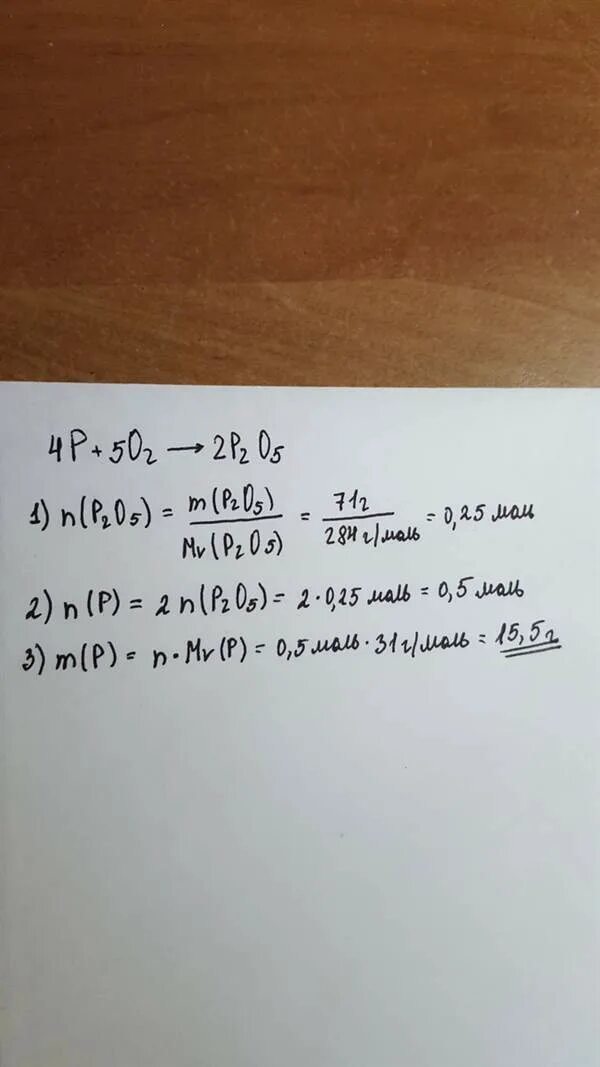 4P + 5O₂ → 2P₂O₅
1) n(P₂O₅) = m(P₂O₅) / Mr(P₂O₅) = 71г / 284 г/моль = 0,25 моль
2) n(P) = 2 n(P₂O₅) = 2·0,25 моль = 0,5 моль
3) m(P) = n·Mr(P) = 0,5 моль · 31 г/моль = 15,5 г